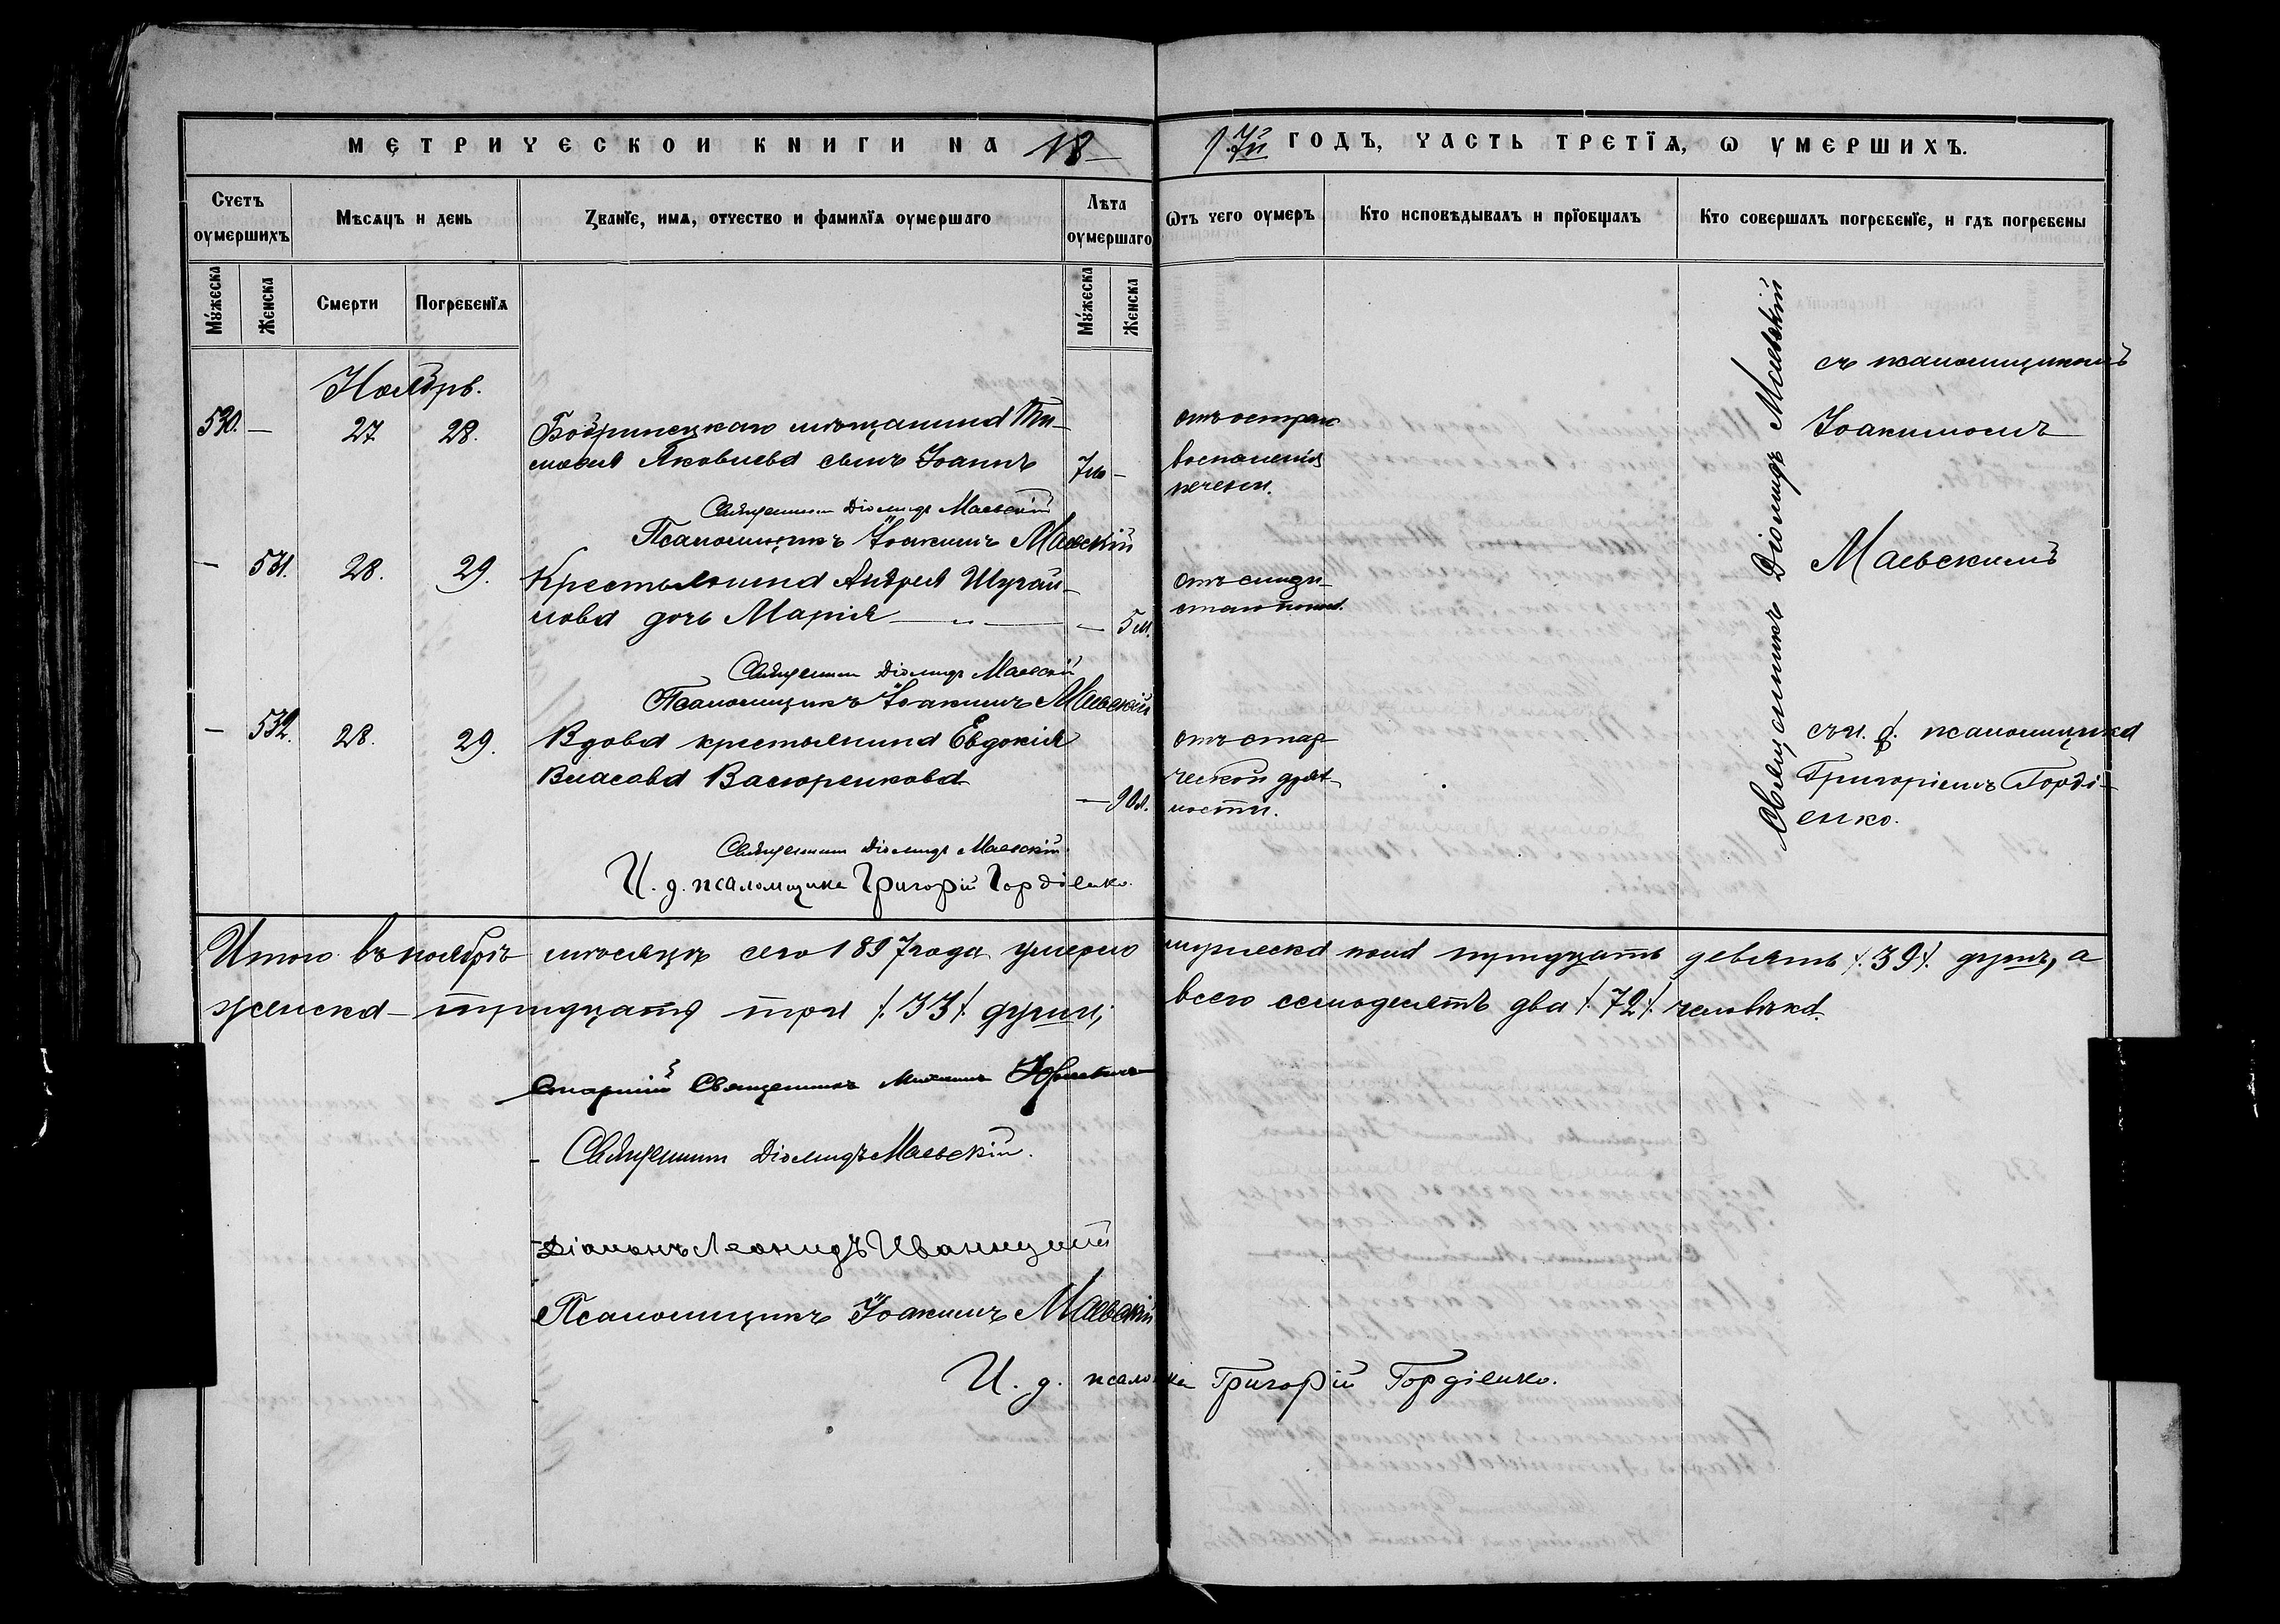 МЕТРИЧЕСКОЙ КНИГИ НА 18 97й ГОДЪ, ЧАСТЬ ТРЕТІѦ, Ѡ УМЕРШИХЪ.
Счетъ оумершихъ
Мѣсѧцъ и день
Званіе, имѧ, отчество и фамиліѧ оумершаго
Лѣта оумершаго
Ѿтъ чего оумеръ
Кто исповѣдывалъ и пріобщалъ
Кто совершалъ погребеніе, и гдѣ погребены
Мужеска
Женска
Смерти
Погребеніѧ
Мужеска
Женска
Ноябрь.
530. — 27. 28. Бобринецкаго мѣщанина Ти-
моѳея Яковлева сынъ Іоаннъ 7 —
отъ остраго
воспаленія
печени.
Священникъ Діомидъ Маевскій
съ псаломщикомъ
Іоакимомъ
Маевскимъ
Священникъ Діомидъ Маевскій
Псаломщикъ Іоакимъ Маевскій
— 531. 28. 29. Крестьянина Андрея Шугай-
лова дочь Марія — 5 м.
Священникъ Діомидъ Маевскій
Псаломщикъ Іоакимъ Маевскій
— 532. 28. 29. Вдова крестьянина Евдокія
Власова Васюренкова — 90 л.
отъ стар-
ческой дрях-
лости.
съ и. д. псаломщика
Григоріемъ Горді-
енко.
Священникъ Діомидъ Маевскій
И. д. псаломщика Григорій Гордіенко.
Итого въ ноябрѣ мѣсяцѣ сего 1897 года умерло мужеска пола тридцать девять /.39/. душъ, а
женска – тридцать три /.33/. души; всего семьдесятъ два /.72/. человѣка.
Старшій Священникъ Михаилъ
Священникъ Діомидъ Маевскій.
Діаконъ Леонидъ Иваницкій
Псаломщикъ Іоакимъ Маевскій
И. д. псалом-ка Григорій Гордіенко.